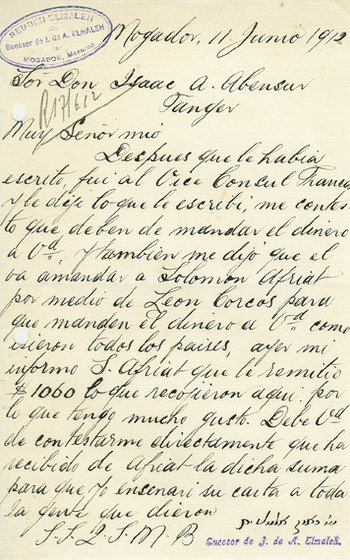 REUBEN ELMALEH
Sucesor de J. de A. ELMALEH
MOGADOR, Morocco
Mogador, 11 Junio 1912
Sor Don Isaac A. Abensur
Tanger
R 17/6/12
Muy Señor mio
Despues que le habia
escrito, fui al Vice Consul Frances
y le dije lo que le escribi, me contes
to que deben de mandar el dinero
a Vd., y tambien me dijo que el
va amandar a Solomon Afriat
por medio de Leon Corcos para
que manden el dinero a Vd como
icieron todos los paises, ayer mi
informo S. Afriat que le remitio
$ 1060 lo que recojieron aqui. por
lo que tengo mucho gusto. Debe Vd
de contestarme directamente que ha
recibido de Afriat la dicha suma
para que yo encenari su carta a toda
la gente que dieron
S. S. Q. S. M. B
Sucesor de J. de A. Elmaleh.